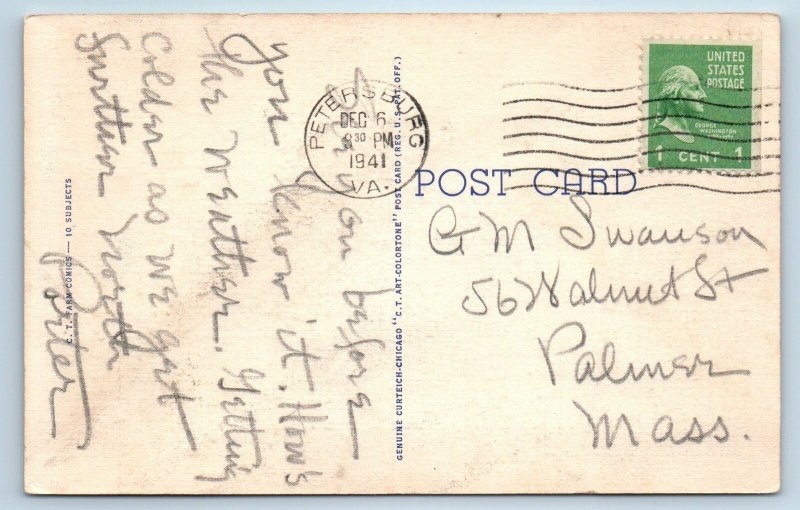 on before
you know it. How's
the Weather. Getting
Colder as we get
north
Porter
C. T. FARM COMICS — 10 SUBJECTS
GENUINE CURTEICH-CHICAGO "C. T. ART-COLORTONE" POST CARD (REG. U. S. PAT. OFF.)
PETERSBURG
DEC 6
8 30 PM
1941
VA.
UNITED
STATES
POSTAGE
GEORGE
WASHINGTON
1 CENT 1
POST CARD
G M Swanson
56 Walnut St
Palmer
Mass.